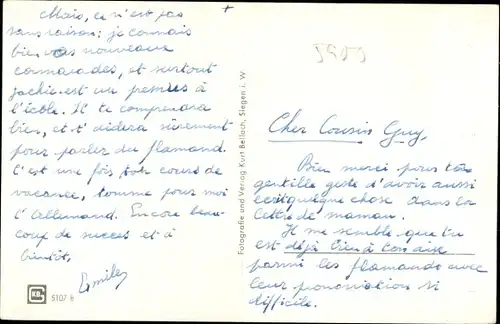 Cher Cousin Guy,
Bien merci pour ton
gentille geste d'avoir aussi
écrit quelque chose dans la
lettre de maman.
Il me semble que tu
est déjà bien à ton aise
parmi les flamands avec
leur prononciation si
difficile.
Mais, ce n'est pas
sans raison: je connais
bien vos nouveaux
camarades, et surtout
Jackie est un premier à
l'école. Il te comprendra
bien, et t'aidera sûrement
pour parler du flamand.
C'est une fois cours de
vacance, comme pour moi
l'allemand. Encore beau-
coup de succes et à
bientôt,
Emile
5107 R
Fotografie und Verlag Kurt Bellach, Siegen i. W